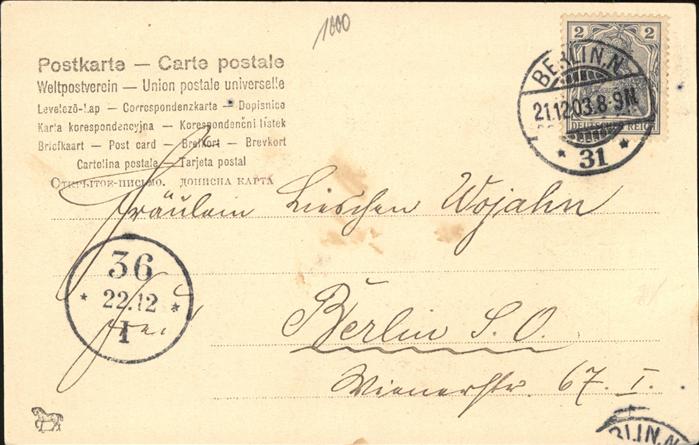 1000
Postkarte — Carte postale
Weltpostverein — Union postale universelle
Levelező-Lap — Correspondenzkarte — Dopisnice
Karta korespondencyjna — Korespondenční lístek
Briefkaart — Post card — Brefkort — Brevkort
Cartolina postale — Tarjeta postal
Открытое-письмо. дописна карта
2 2
DEUTSCHES REICH
BERLIN.N.
21.12.03.8-9N.
* 31 *
Fräulein Lieschen Wojahn
36
* 22.12 *
I
Berlin S.O.
Wienerstr. 67. I.
BERLIN.N.